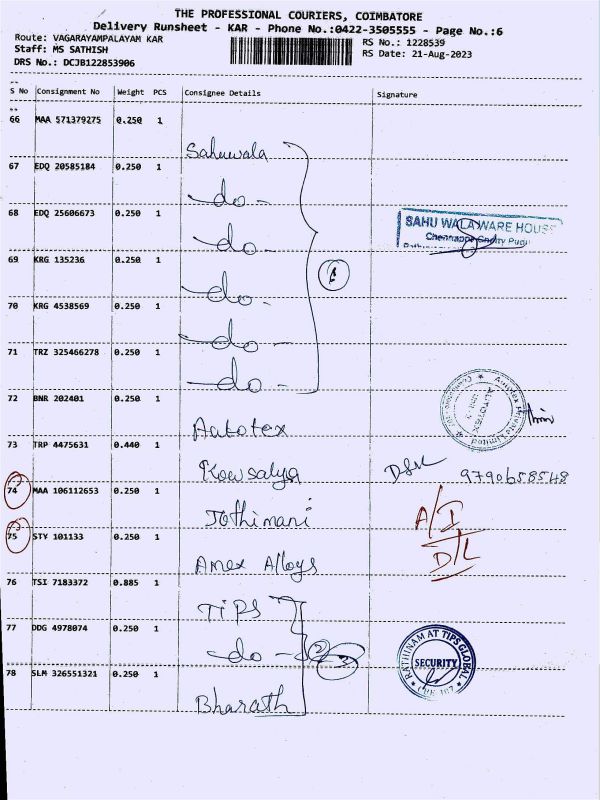 THE PROFESSIONAL COURIERS, COIMBATORE
Delivery Runsheet - KAR - Phone No.:0422-3505555 - Page No.:6
Route: VAGARAYAMPALAYAM KAR
RS No.: 1228539
Staff: MS SATHISH
RS Date: 21-Aug-2023
DRS No.: DCJB122853906
S No Consignment No Weight PCS Consignee Details Signature
66 MAA 571379275 0.250 1
Sahuwala
67 EDQ 20585184 0.250 1
-do-
68 EDQ 25606673 0.250 1
SAHU WALA WARE HOUSE
-do-
Chennappa Chetty Pudu
69 KRG 135236 0.250 1
-do-
70 KRG 4538569 0.250 1
-do-
71 TRZ 325466278 0.250 1
-do-
72 BNR 202401 0.250 1
Autotex Private Limited
AUTOTEX
Aatotex
73 TRP 4475631 0.440 1
Kowsalya 9790658548
74 MAA 106112653 0.250 1
Jothimani A/I
75 STY 101133 0.250 1
D/L
Amex Alloys
76 TSI 7183372 0.885 1
TIPS
77 DDG 4978074 0.250 1
-do- 2 3
RATHINAM AT TIPS GLOBAL
SECURITY
78 SLM 326551321 0.250 1
Bharath